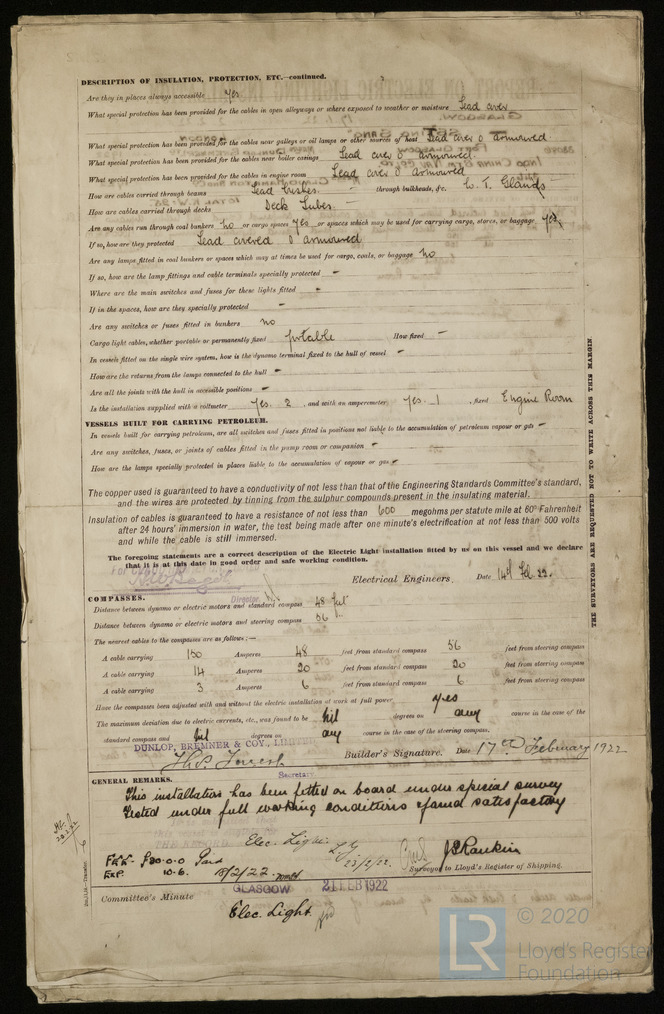 DESCRIPTION OF INSULATION, PROTECTION, ETC.—continued.
Are they in places always accessible Yes
What special protection has been provided for the cables in open alleyways or where exposed to weather or moisture Lead cover
What special protection has been provided for the cables near galleys or oil lamps or other sources of heat Lead cover & armoured
What special protection has been provided for the cables near boiler casings Lead cover & armoured
What special protection has been provided for the cables in engine room Lead cover & armoured
How are cables carried through beams Lead bushes through bulkheads, &c. W. T. Glands
How are cables carried through decks Deck Tubes
Are any cables run through coal bunkers no or cargo spaces yes or spaces which may be used for carrying cargo, stores, or baggage yes
If so, how are they protected Lead covered & armoured
Are any lamps fitted in coal bunkers or spaces which may at times be used for cargo, coals, or baggage no
If so, how are the lamp fittings and cable terminals specially protected –
Where are the main switches and fuses for these lights fitted –
If in the spaces, how are they specially protected –
Are any switches or fuses fitted in bunkers no
Cargo light cables, whether portable or permanently fixed portable How fixed –
In vessels fitted on the single wire system, how is the dynamo terminal fixed to the hull of vessel –
How are the returns from the lamps connected to the hull –
Are all the joints with the hull in accessible positions –
Is the installation supplied with a voltmeter Yes. 2 , and with an amperemeter Yes. 1 , fixed Engine Room
VESSELS BUILT FOR CARRYING PETROLEUM.
In vessels built for carrying petroleum, are all switches and fuses fitted in positions not liable to the accumulation of petroleum vapour or gas –
Are any switches, fuses, or joints of cables fitted in the pump room or companion –
How are the lamps specially protected in places liable to the accumulation of vapour or gas –
The copper used is guaranteed to have a conductivity of not less than that of the Engineering Standards Committee's standard,
and the wires are protected by tinning from the sulphur compounds present in the insulating material.
Insulation of cables is guaranteed to have a resistance of not less than 600 megohms per statute mile at 60° Fahrenheit
after 24 hours' immersion in water, the test being made after one minute's electrification at not less than 500 volts
and while the cable is still immersed.
The foregoing statements are a correct description of the Electric Light installation fitted by us on this vessel and we declare
that it is at this date in good order and safe working condition.
For
Electrical Engineers. Date 14th Feb. 22.
Director.
COMPASSES.
Distance between dynamo or electric motors and standard compass 48 feet
Distance between dynamo or electric motors and steering compass 56 "
The nearest cables to the compasses are as follows:—
A cable carrying 150 Amperes 48 feet from standard compass 56 feet from steering compass
A cable carrying 14 Amperes 20 feet from standard compass 20 feet from steering compass
A cable carrying 3 Amperes 6 feet from standard compass 6 feet from steering compass
Have the compasses been adjusted with and without the electric installation at work at full power yes
The maximum deviation due to electric currents, etc., was found to be nil degrees on any course in the case of the
standard compass and nil degrees on any course in the case of the steering compass.
DUNLOP, BREMNER & COY., LIMITED
Builder's Signature. Date 17th February 1922
Secretary
GENERAL REMARKS.
This installation has been fitted on board under special survey
Tested under full working conditions & found satisfactory
Elec. Light
23/2/22
J S Rankin
Surveyor to Lloyd's Register of Shipping.
FEE- £20.0.0
EXP. 10.6. 18/2/22
GLASGOW 21 FEB 1922
Committee's Minute
Elec. Light
THE SURVEYORS ARE REQUESTED NOT TO WRITE ACROSS THIS MARGIN.
© 2020
LR
Lloyd's Register
Foundation